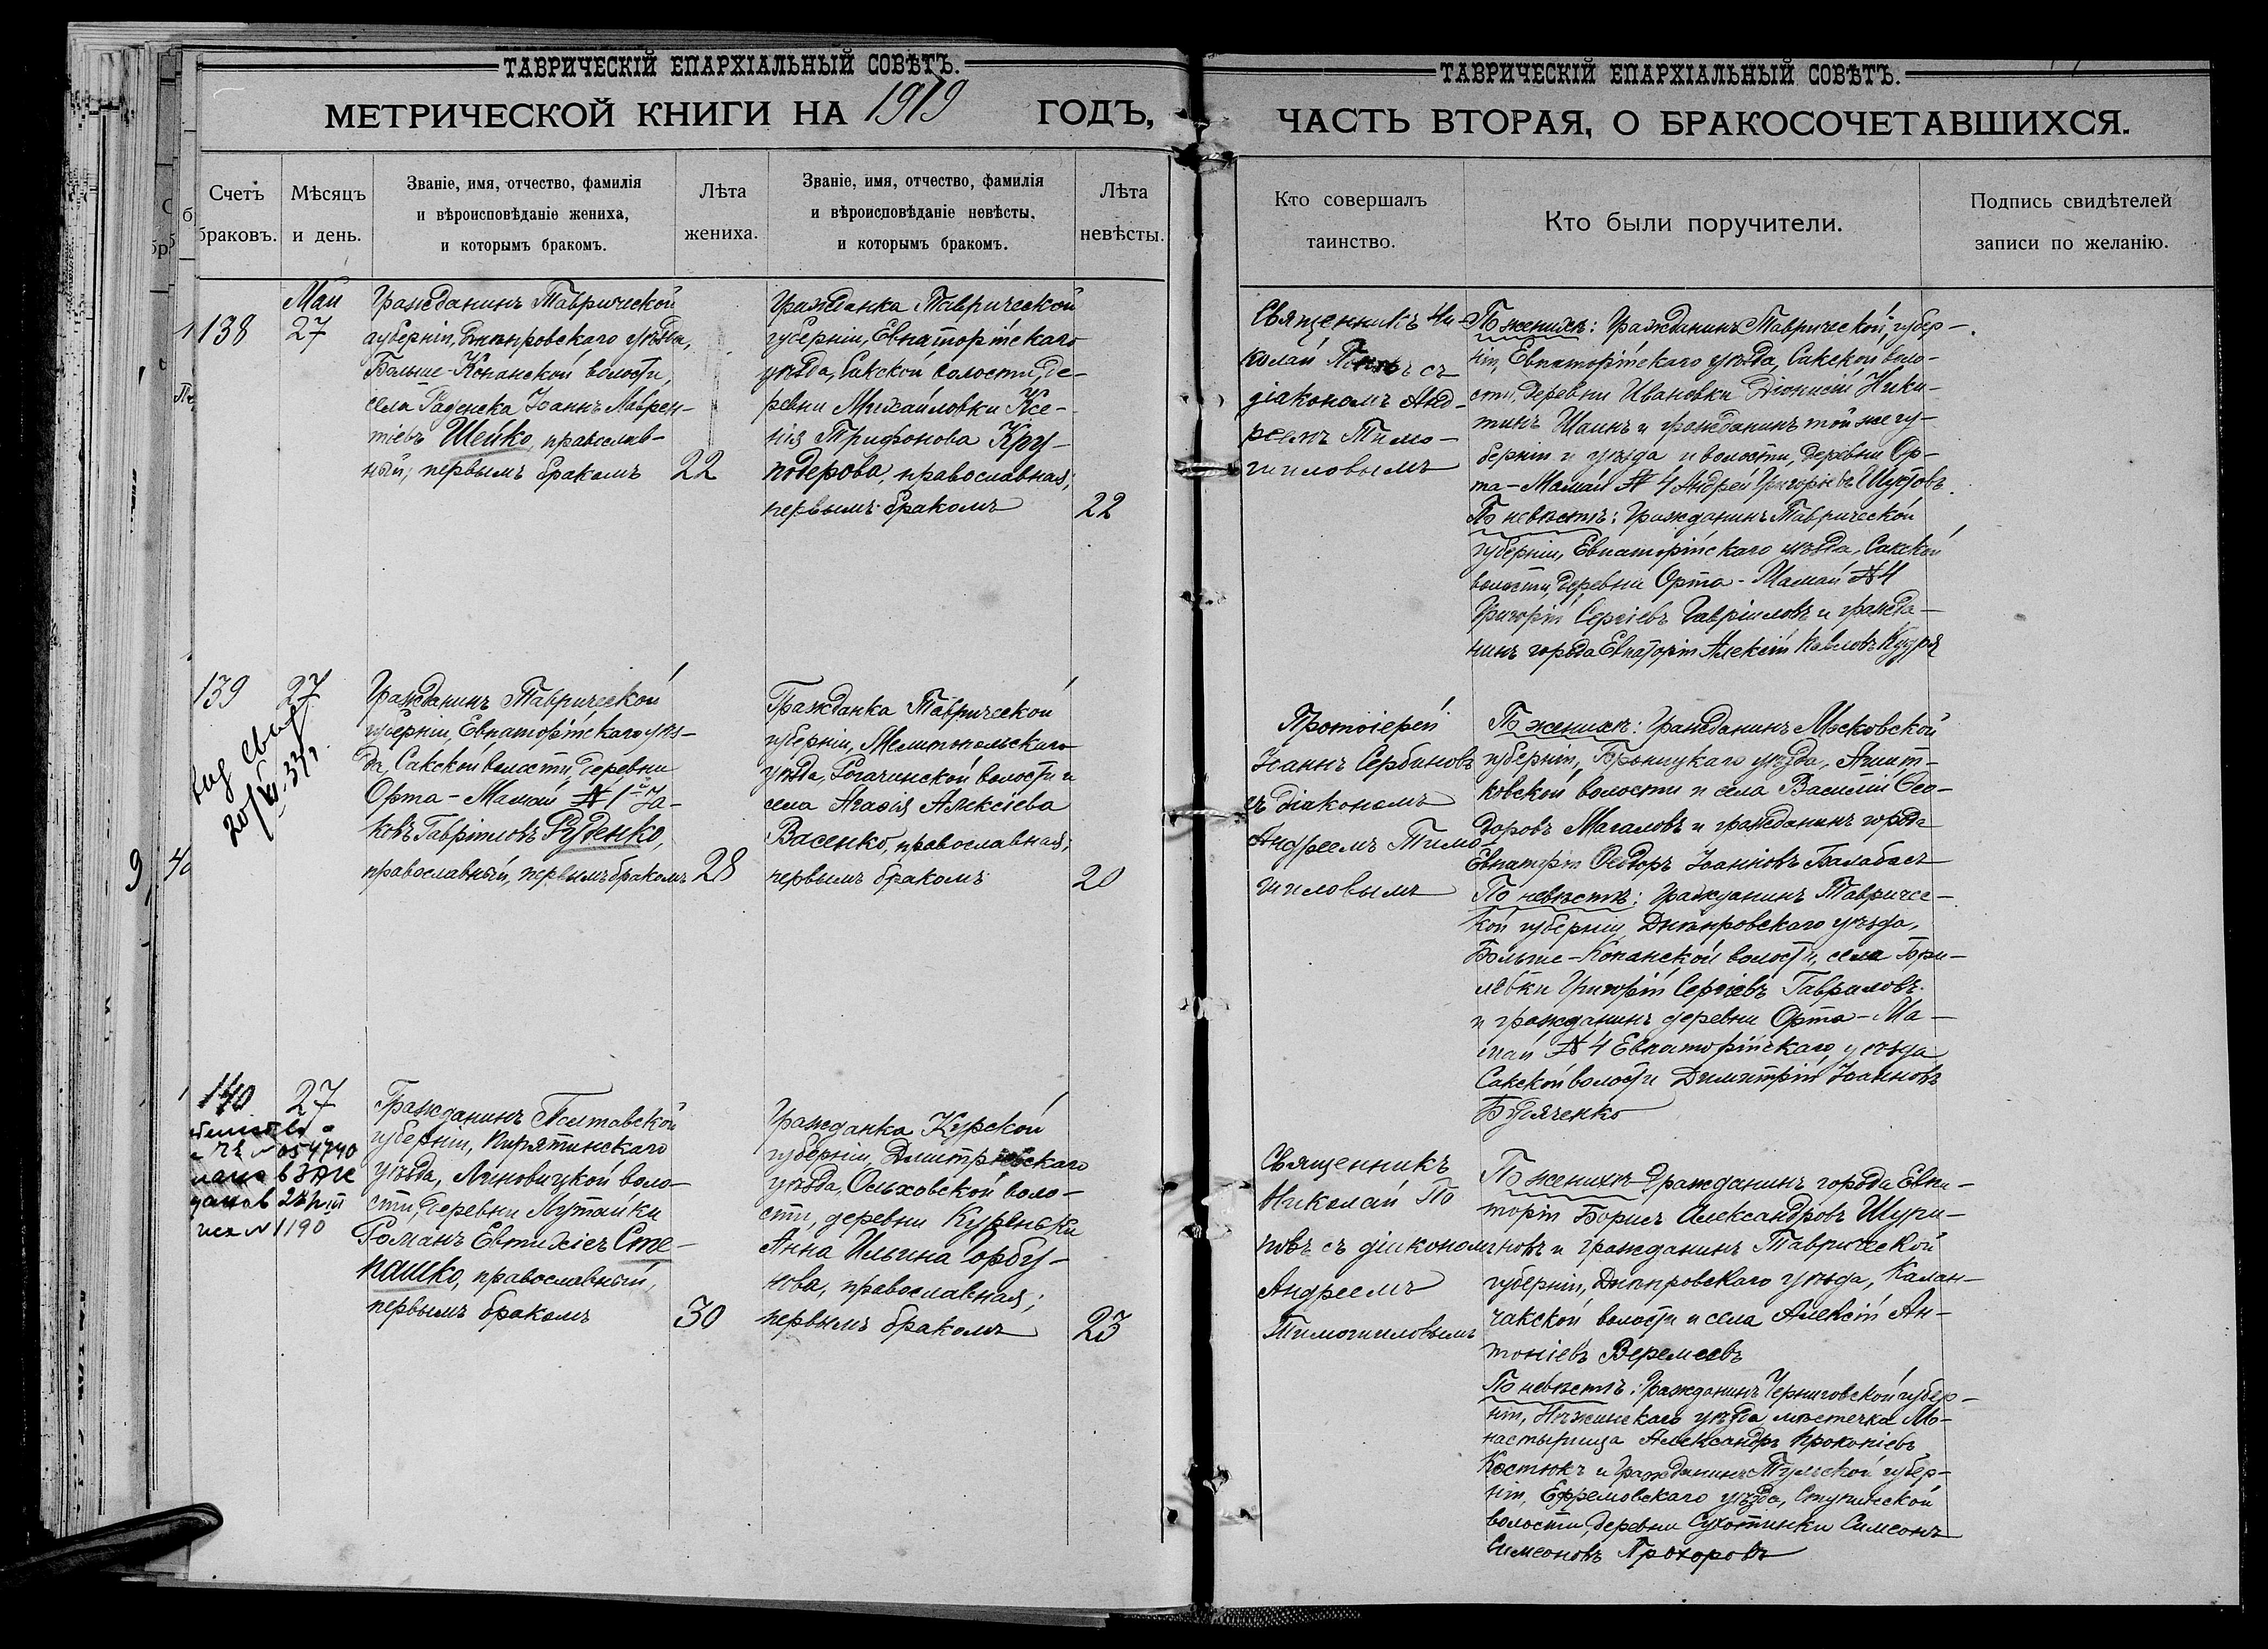 ТАВРИЧЕСКІЙ ЕПАРХІАЛЬНЫЙ СОВѢТЪ.
МЕТРИЧЕСКОЙ КНИГИ НА 1919 ГОДЪ,
Счетъ браковъ.
Мѣсяцъ и день.
Званіе, имя, отчество, фамилія
и вѣроисповѣданіе жениха,
и которымъ бракомъ.
Лѣта жениха.
Званіе, имя, отчество, фамилія
и вѣроисповѣданіе невѣсты,
и которымъ бракомъ.
Лѣта невѣсты.
138
Май
27
Гражданинъ Таврической
губерніи, Днѣпровскаго уѣзда,
Больше-Копанской волости,
села Раденска Іоаннъ Лаврен-
тіевъ Шейко, православ-
ный, первымъ бракомъ
22
Гражданка Таврической
губерніи, Евпаторійскаго
уѣзда, Сакской волости, де-
ревни Михайловки Ксе-
нія Трифонова Кру-
подерова, православная,
первымъ бракомъ
22
139
27
20/XI.33г.
Гражданинъ Таврической
губерніи, Евпаторійскаго уѣз-
да, Сакской волости, деревни
Орта-Мамай №1й Іа-
ковъ Гавріиловъ Руденко,
православный, первымъ бракомъ
28
Гражданка Таврической
губерніи, Мелитопольскаго
уѣзда, Рогачинской волости и
села Агафія Алексіева
Васенко, православная,
первымъ бракомъ
20
140
27
№ 054740
в ЗАГС
№ 1190
Гражданинъ Полтавской
губерніи, Пирятинскаго
уѣзда, Линовицкой воло-
сти, деревни Мутайки
Романъ Евтихіевъ Сте-
пашко, православный,
первымъ бракомъ
30
Гражданка Курской
губерніи, Дмитріевскаго
уѣзда, Ольховской воло-
сти, деревни Куреньки
Анна Ильина орбу-
нова, православная;
первымъ бракомъ
23
ТАВРИЧЕСКІЙ ЕПАРХІАЛЬНЫЙ СОВѢТЪ.
ЧАСТЬ ВТОРАЯ, О БРАКОСОЧЕТАВШИХСЯ.
Кто совершалъ
таинство.
Кто были поручители.
Подпись свидѣтелей
записи по желанію.
Священникъ Ни-
колай Поповъ съ
діакономъ Анд-
реемъ Тимо-
шиловымъ
По женихѣ: Гражданинъ Таврической губер-
ніи, Евпаторійскаго уѣзда, Сакской воло-
сти, деревни Ивановки Діонисій Ники-
тинъ Шаинъ и гражданинъ той же гу-
берніи и уѣзда и волости, деревни Ор-
та-Мамай №4 Андрей Григоріевъ Шутовъ.
По невѣстѣ: Гражданинъ Таврической
губерніи, Евпаторійскаго уѣзда, Сакской
волости, деревни Орта-Мамай №4
Григорій Сергіевъ Гавриловъ и гражда-
нинъ города Евпаторіи Алексій Павловъ Кудря
Протоіерей
Іоаннъ Сербиновъ
съ діакономъ
Андреемъ Тимо-
шиловымъ
По женихѣ: Гражданинъ Московской
губерніи, Бронницкаго уѣзда, Ашит-
ковской волости и села Василій Ѳео-
доровъ Магаловъ и гражданинъ города
Евпаторіи Ѳеодоръ Іоанновъ Балабасъ
По невѣстѣ: Гражданинъ Тавричес-
кой губерніи, Днѣпровскаго уѣзда,
Больше-Копанской волости, села
Григорій Сергіевъ Гавриловъ
и гражданинъ деревни Орта-Ма-
май №4 Евпаторійскаго уѣзда
Сакской волости Димитрій Іоанновъ
Будяченко
Священникъ
Николай По
повъ съ діакономъ
Андреемъ
Тимошиловымъ
По женихѣ Гражданинъ города Евпа-
торіи Борисъ Александровъ Шури-
новъ и гражданинъ Таврической
губерніи, Днѣпровскаго уѣзда, Калан-
чакской волости и села Алексій Ан-
тоніевъ Веремеевъ
По невѣстѣ: Гражданинъ Черниговской губер-
ніи, Нѣжинскаго уѣзда, мѣстечка Мо-
настырища Александръ Прокопіевъ
Костюкъ и гражданинъ Тульской губер-
ніи, Ефремовскаго уѣзда, Ступинской
волости, деревни Сухотинки Симеонъ
Симеоновъ Прохоровъ